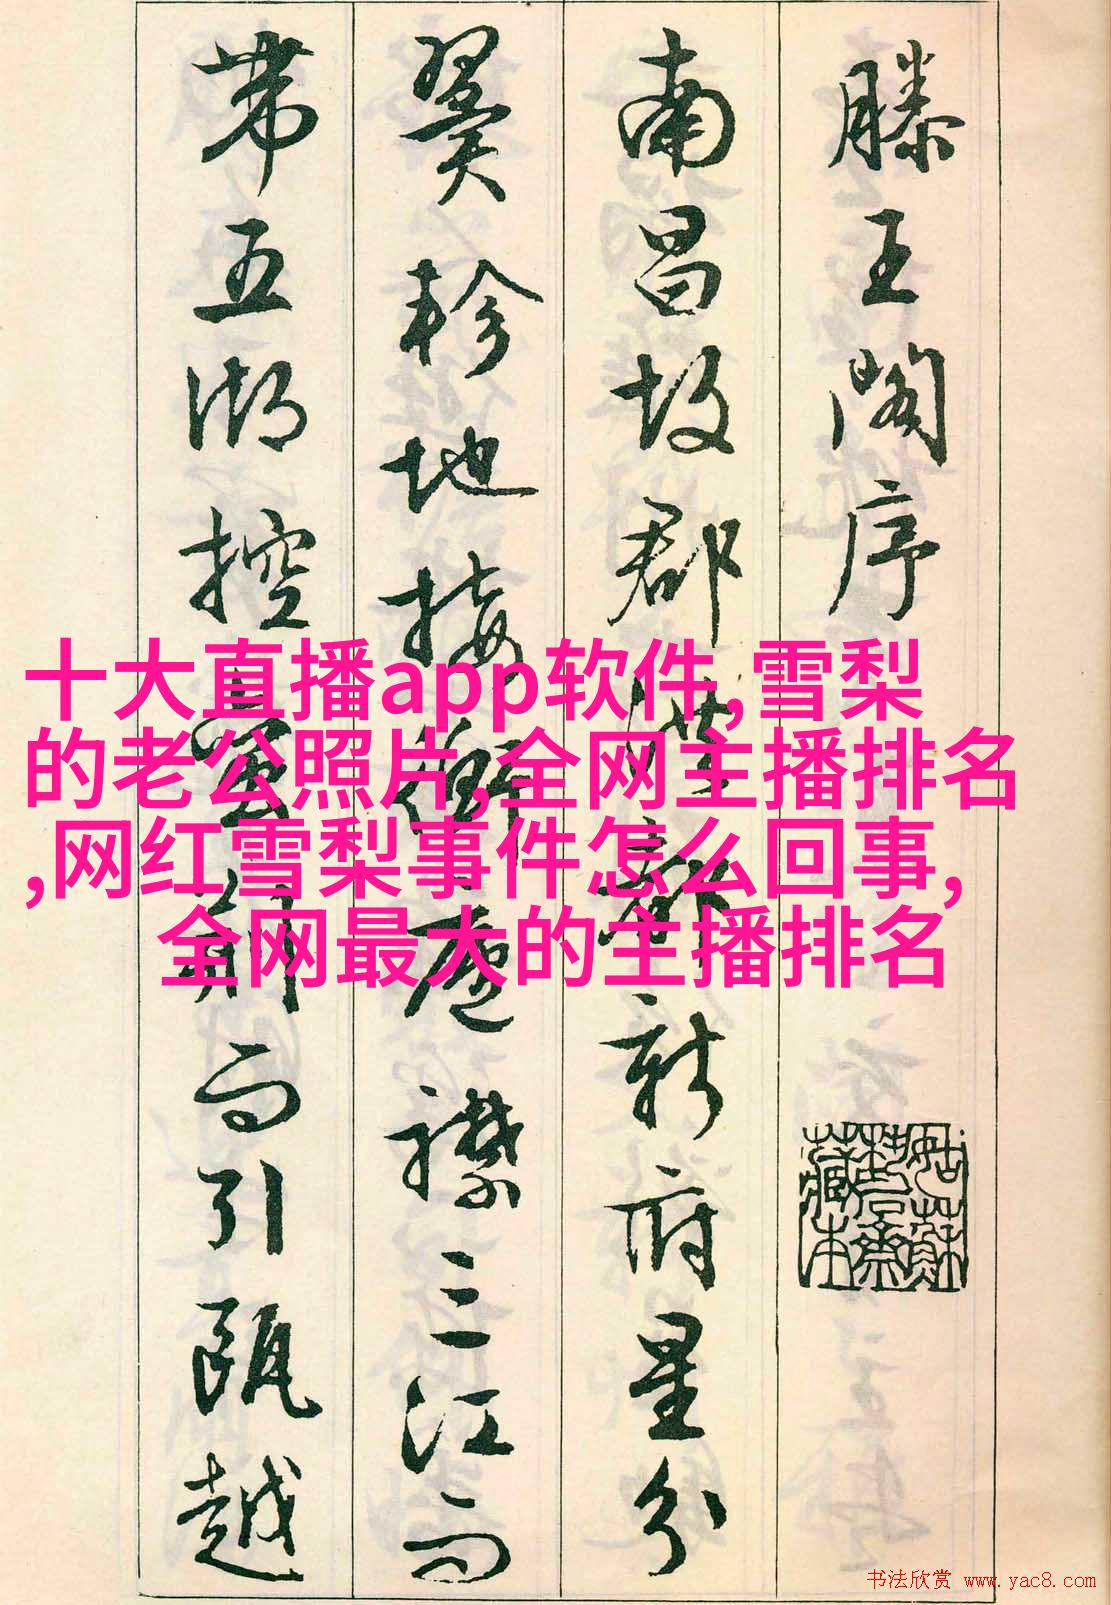 滕王閣序
南昌故郡洪都新府星分
翼軫地接衡廬襟三江而
帶五湖控蛮荊而引甌越
十大直播app软件,雪梨
的老公照片,全网主播排名
,网红雪梨事件怎么回事,
全网最大的主播排名
姑蘇
藏本
书法欣赏 www.yac8.com